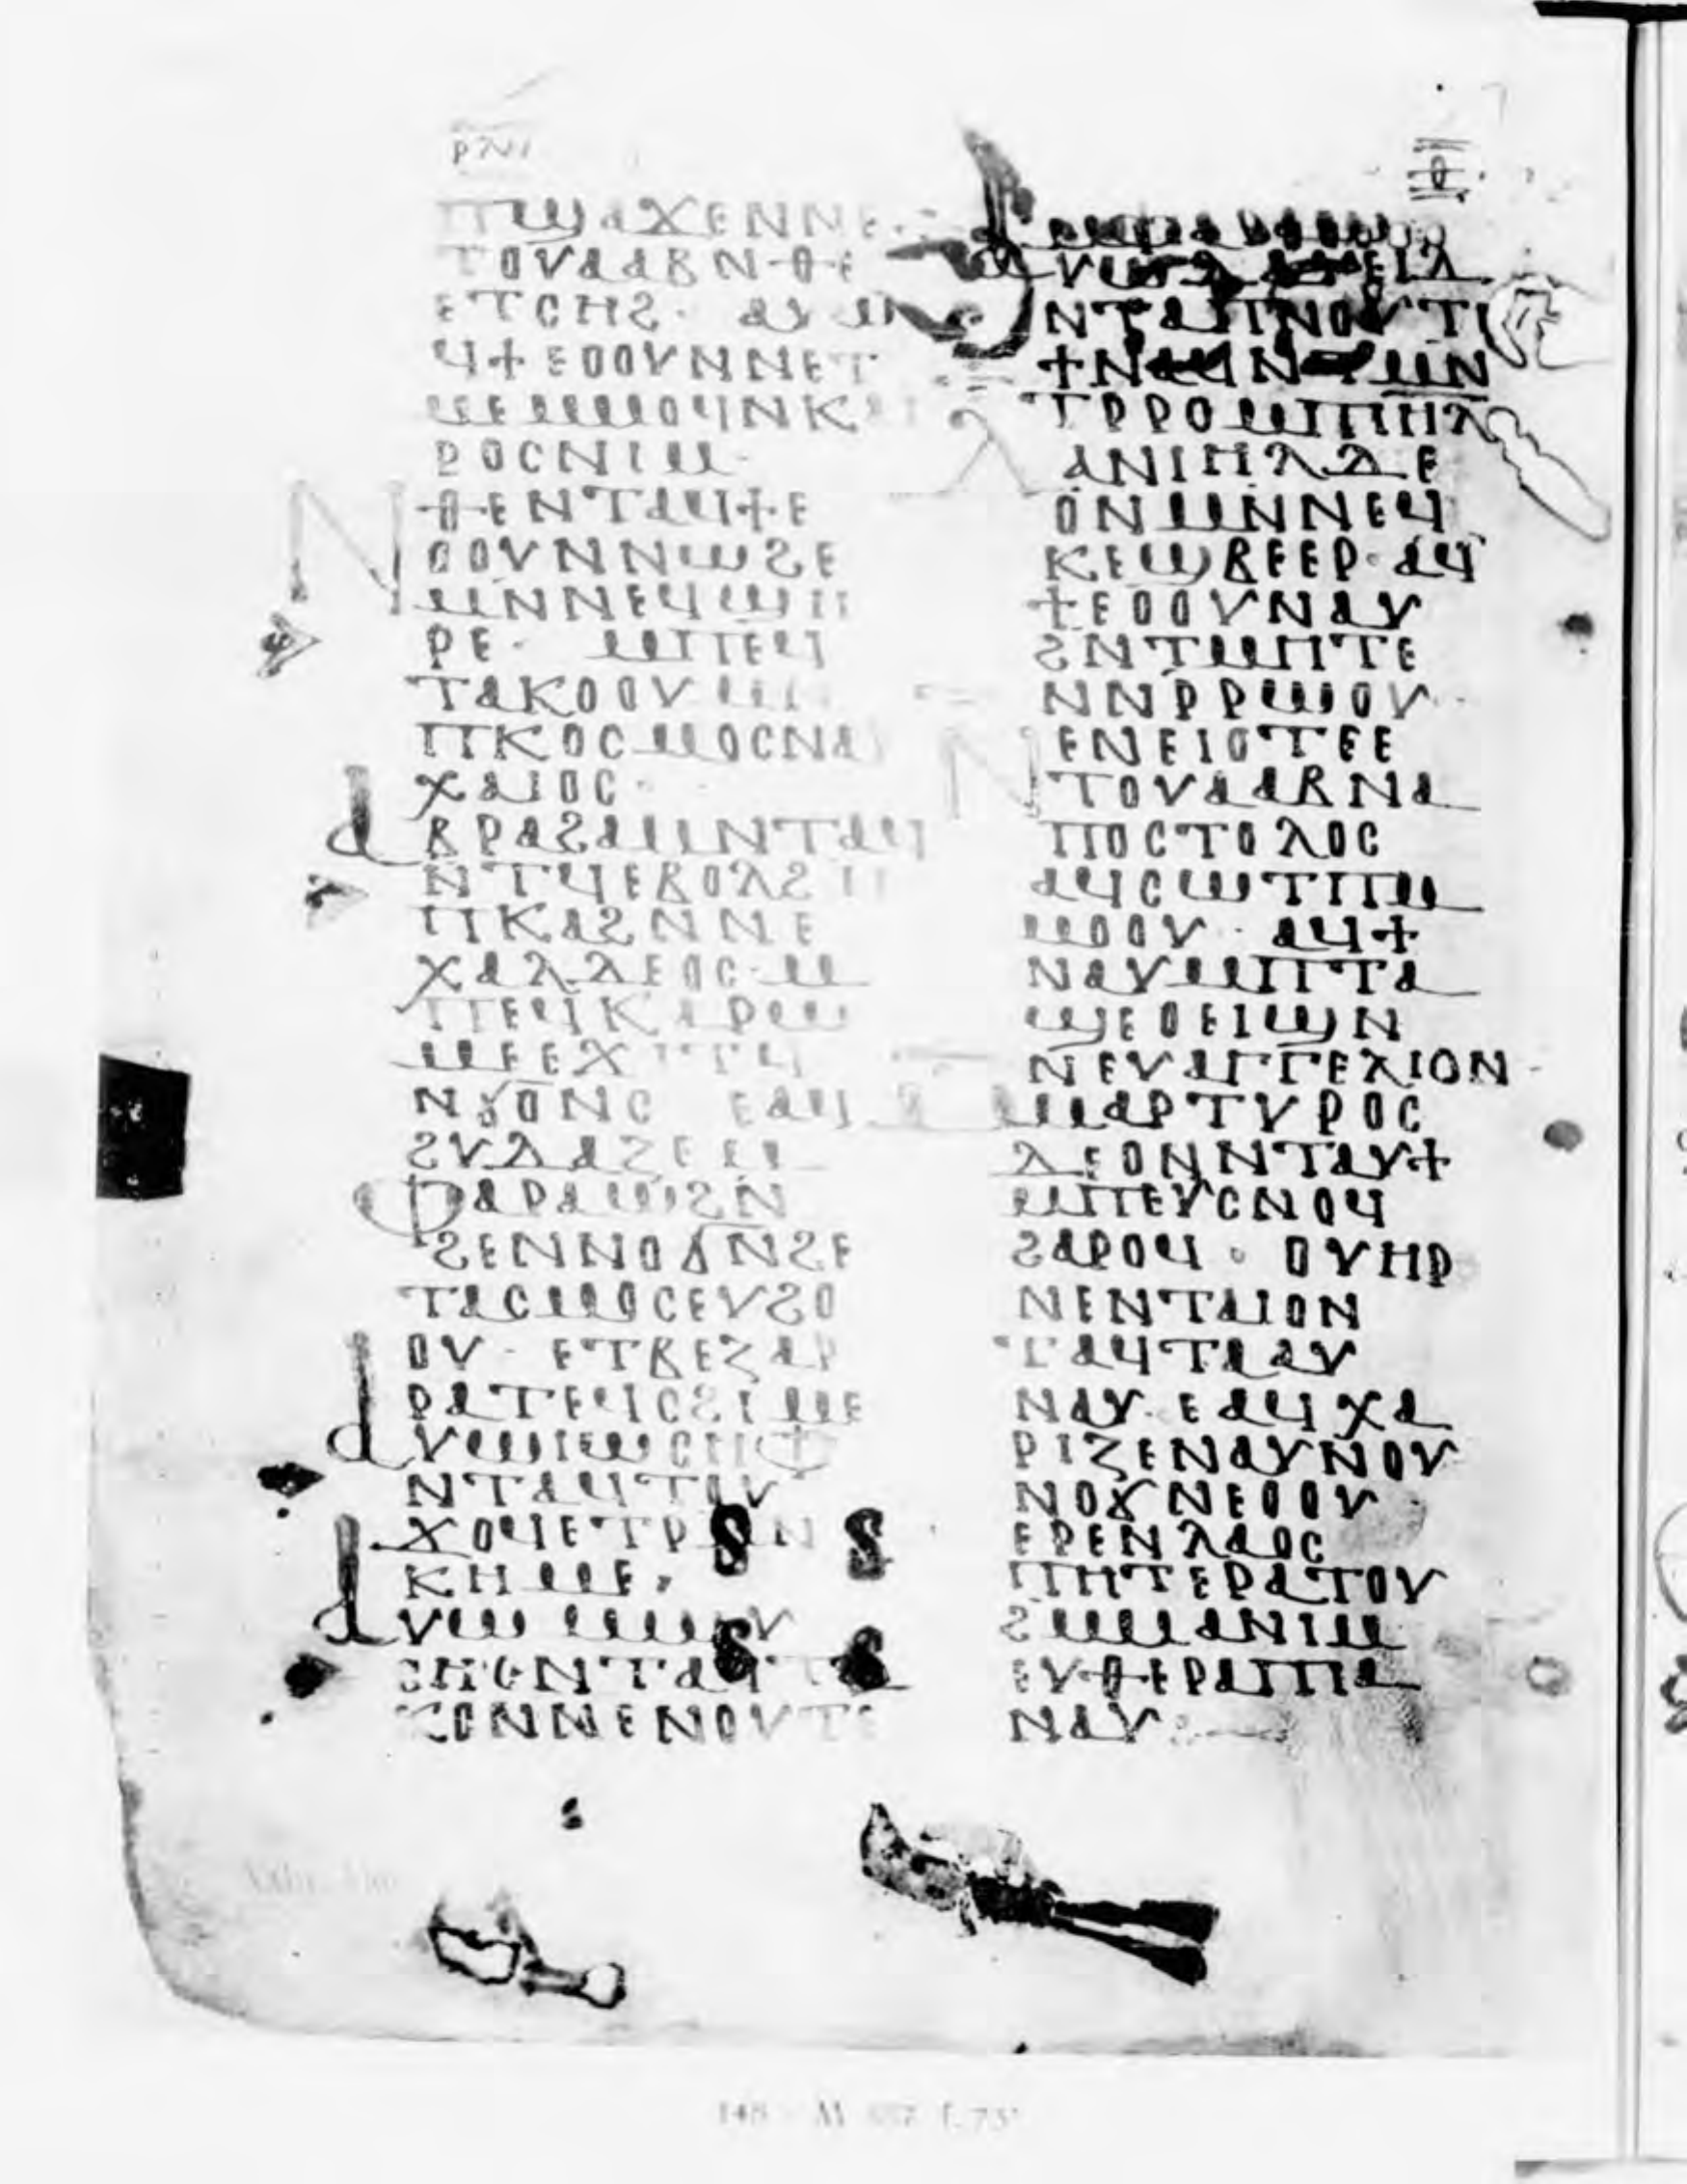 ⲡϣⲁϫⲉⲛⲛⲉ
ⲧⲟⲩⲁⲁⲃⲛⲑⲉ
ⲉⲧⲥⲏϩ· ⲁⲩⲱ
ϥϯⲉⲟⲟⲩⲛⲛⲉⲧ
ⲙⲉⲙⲙⲟϥⲛⲕⲁⲓ
ⲣⲟⲥⲛⲓⲙ·
Ⲛⲑⲉⲛⲧⲁϥϯⲉ
ⲟⲟⲩⲛⲛⲱϩⲉ
ⲙⲛⲛⲉϥϣⲏ
ⲣⲉ· ⲙⲡⲉϥ
ⲧⲁⲕⲟⲟⲩⲙⲛ
ⲡⲕⲟⲥⲙⲟⲥⲛⲁⲣ
ⲭⲁⲓⲟⲥ·
Ⲁⲃⲣⲁϩⲁⲙⲛⲧⲁϥ
ⲛⲧϥⲉⲃⲟⲗϩⲙ
ⲡⲕⲁϩⲛⲛⲉ
ⲭⲁⲗⲇⲉⲟⲥ·ⲙ
ⲡⲉϥⲕⲁⲣⲱ
ⲙⲉⲉϫⲓⲧϥ
ⲛϭⲟⲛⲥ ⲉⲁϥ
ϩⲩⲇⲁⲍⲉⲙ
ⲫⲁⲣⲁⲱϩⲛ
ϩⲉⲛⲛⲟϭⲛϩⲉ
ⲧⲁⲥⲙⲟⲥⲉⲩϩⲟ
ⲟⲩ· ⲉⲧⲃⲉⲍⲁⲣ
ⲣⲁⲧⲉϥⲥϩⲓⲙⲉ
Ⲁⲩⲱⲓⲱⲥⲏⲫ
ⲛⲧⲁϥⲧⲟⲩ
Ⲁϫⲟϥⲉⲧⲣⲙⲛ
ⲕⲏⲙⲉ·
Ⲁⲩⲱ ⲙⲱⲩ
ⲥⲏⲥⲛⲧⲁϥⲧⲁ
ⲕⲟⲛⲛⲉⲛⲟⲩⲧⲉ
ⲛⲧⲁⲡⲛⲟⲩⲧⲉ
ⲧⲣⲣⲟⲙⲡⲓⲏⲗ
ⲇⲁⲛⲓⲏⲗⲇⲉ
ⲟⲛⲙⲛⲛⲉϥ
ⲕⲉϣⲃⲉⲉⲣ·ⲁϥ
ϯⲉⲟⲟⲩⲛⲁⲩ
ϩⲛⲧⲙⲏⲧⲉ
ⲛⲛⲣⲣⲱⲟⲩ·
Ⲛⲉⲛⲉⲓⲟⲧⲉⲉ
ⲧⲟⲩⲁⲁⲃⲛⲁ
ⲡⲟⲥⲧⲟⲗⲟⲥ
ⲁϥⲥⲱⲧⲡⲙ
ⲙⲟⲟⲩ· ⲁϥϯ
ⲛⲁⲩⲙⲡⲧⲁ
ϣⲉⲟⲉⲓϣⲛ
ⲛⲉⲩⲁⲅⲅⲉⲗⲓⲟⲛ
Ⲙⲙⲁⲣⲧⲩⲣⲟⲥ
ⲇⲉⲟⲛⲛⲧⲁⲩϯ
ⲙⲡⲉⲩⲥⲛⲟϥ
ϩⲁⲣⲟϥ· ⲟⲩⲏⲣ
ⲛⲉⲛⲧⲁⲓⲟⲛ
ⲧⲁϥⲧⲁⲁⲩ
ⲛⲁⲩ· ⲉⲁϥⲭⲁ
ⲣⲓⲍⲉⲛⲁⲩⲛⲟⲩ
ⲛⲟϭⲛⲉⲟⲟⲩ·
ⲉⲣⲉⲛⲗⲁⲟⲥ
ⲡⲏⲧⲉⲣⲁⲧⲟⲩ
ϩⲙⲙⲁⲛⲓⲙ
ⲉⲩⲑⲉⲣⲁⲡⲓⲁ
ⲛⲁⲩ·